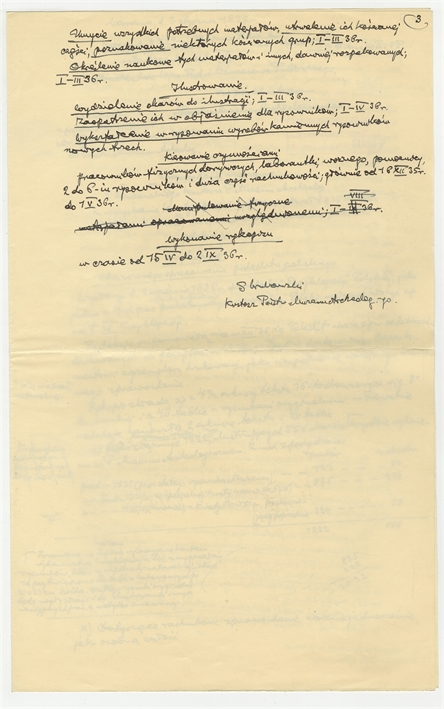 3
Umycie wszystkich potrzebnych materjałów, utrwalenie ich kościanej
części, poznakowanie niektórych kościanych grup; I–III 36r.
Określenie naukowe tych materjałów i innych, dawniej rozpakowanych;
I–III 36r.
Ilustrowanie.
Wydzielenie okazów do ilustracji; I–III 36r.
Zaopatrzenie ich w objaśnienie dla rysowników; I–IV 36r.
w rysowaniu wyrobów kamiennych rysowników
nowych trzech.
Kierowanie czynnościami
pracowników fizycznych dorywczych, laborantki, woźnego, pomocnicy,
2 do 6-iu rysowników i duża część rachunkowości; głównie od 18 XII 35r.
do 1 V 36r.
fizyczne
materjałami opracowanemi i uwzględnionemi; I–VIII 36r.
wykonanie rękopisu
w czasie od 15 IV do 2 IX 36r.
S Krukowski
Kustosz Państw. Muzeum Archeolog-go.